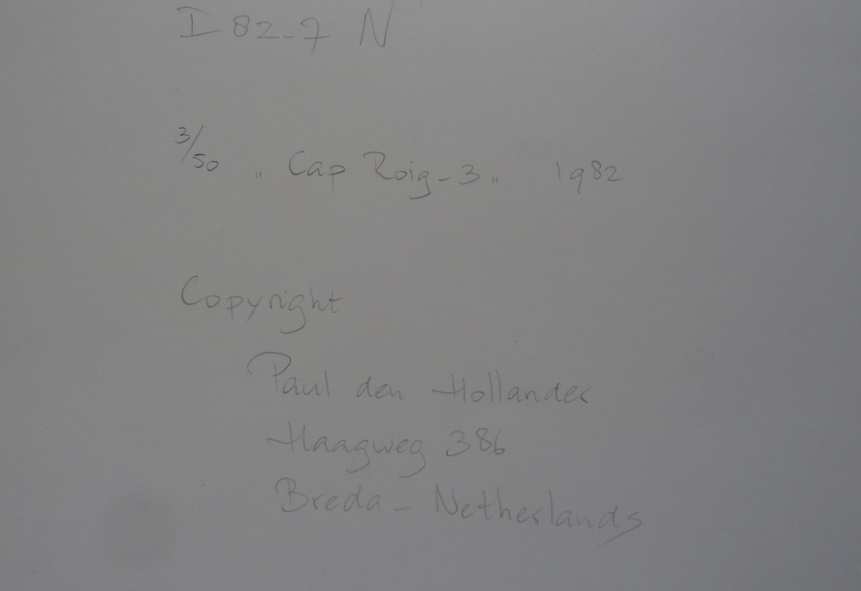 I 82-7 N
3/50 „ Cap Roig-3 „ 1982
Copyright
Paul den Hollander
Haagweg 386
Breda - Netherlands